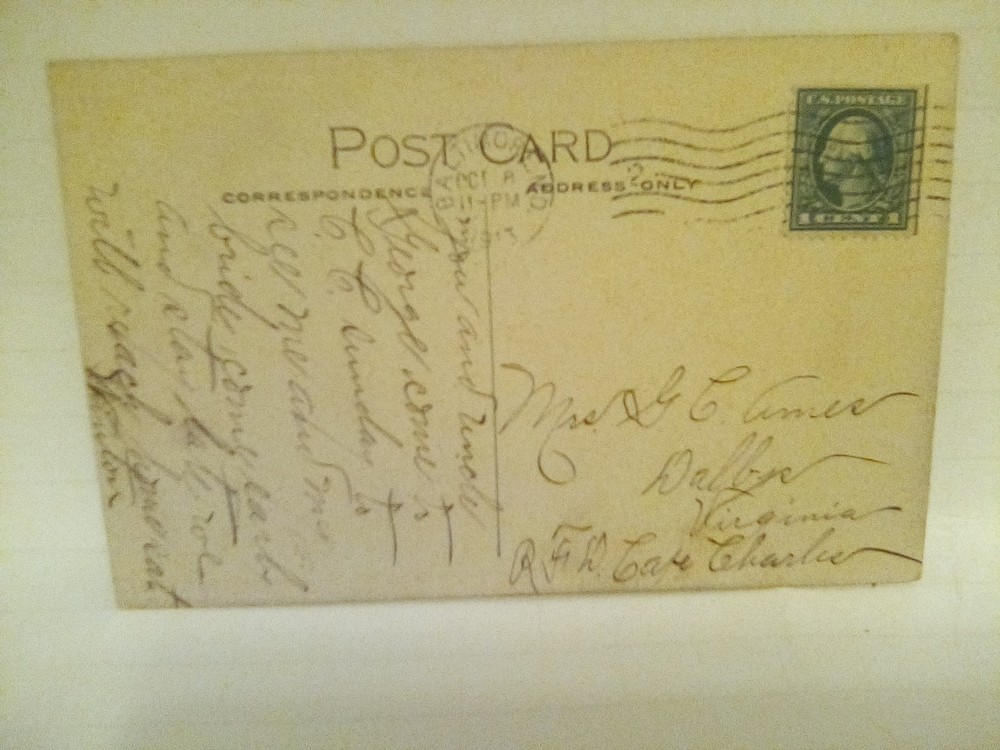 POST CARD
CORRESPONDENCE
ADDRESS ONLY
U.S. POSTAGE
1 CENT 1
BALTIMORE, MD
OCT 8
11-PM
1913
you and Uncle
George come to
C. C. Sunday to
see me and my
bride come early
and stay late we
will
Mrs. G. C. Ames
Dalbys
Virginia
R.F.D. Cape Charles